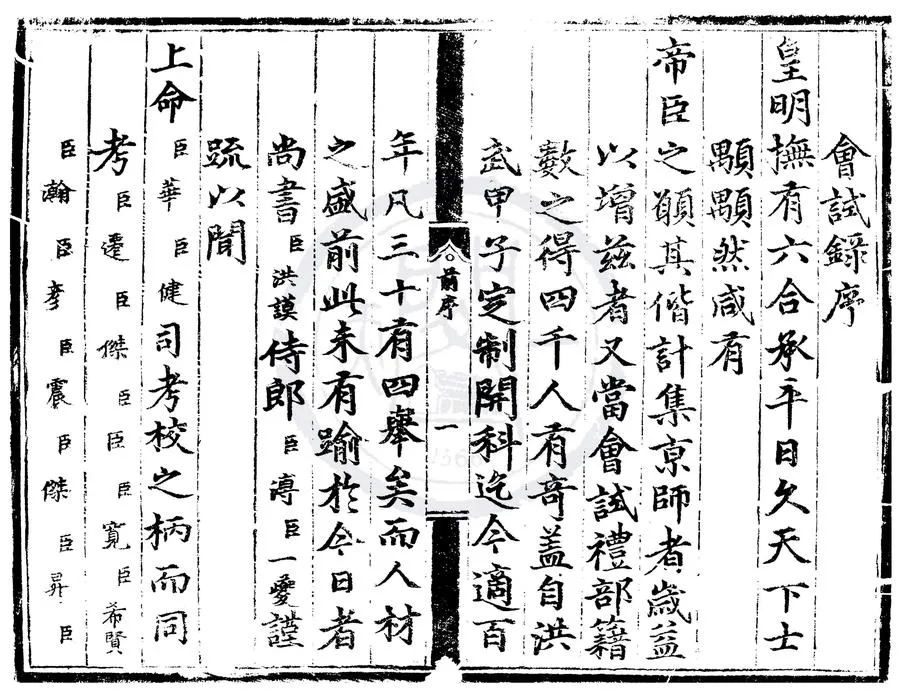 會試錄序
皇明撫有六合承平日久天下士
顒顒然咸有
帝臣之願其偕計集京師者歲益
以增茲者又當會試禮部籍
數之得四千人有奇蓋自洪
武甲子定制開科迄今適百
前序
一
年凡三十有四舉矣而人材
之盛前此未有踰於今日者
尚書臣洪謨侍郎臣溥臣一夔謹
疏以聞
上命臣華臣健司考校之柄而同
考臣遷臣傑臣臣寬臣希賢
臣瀚臣彥臣震臣傑臣昇臣